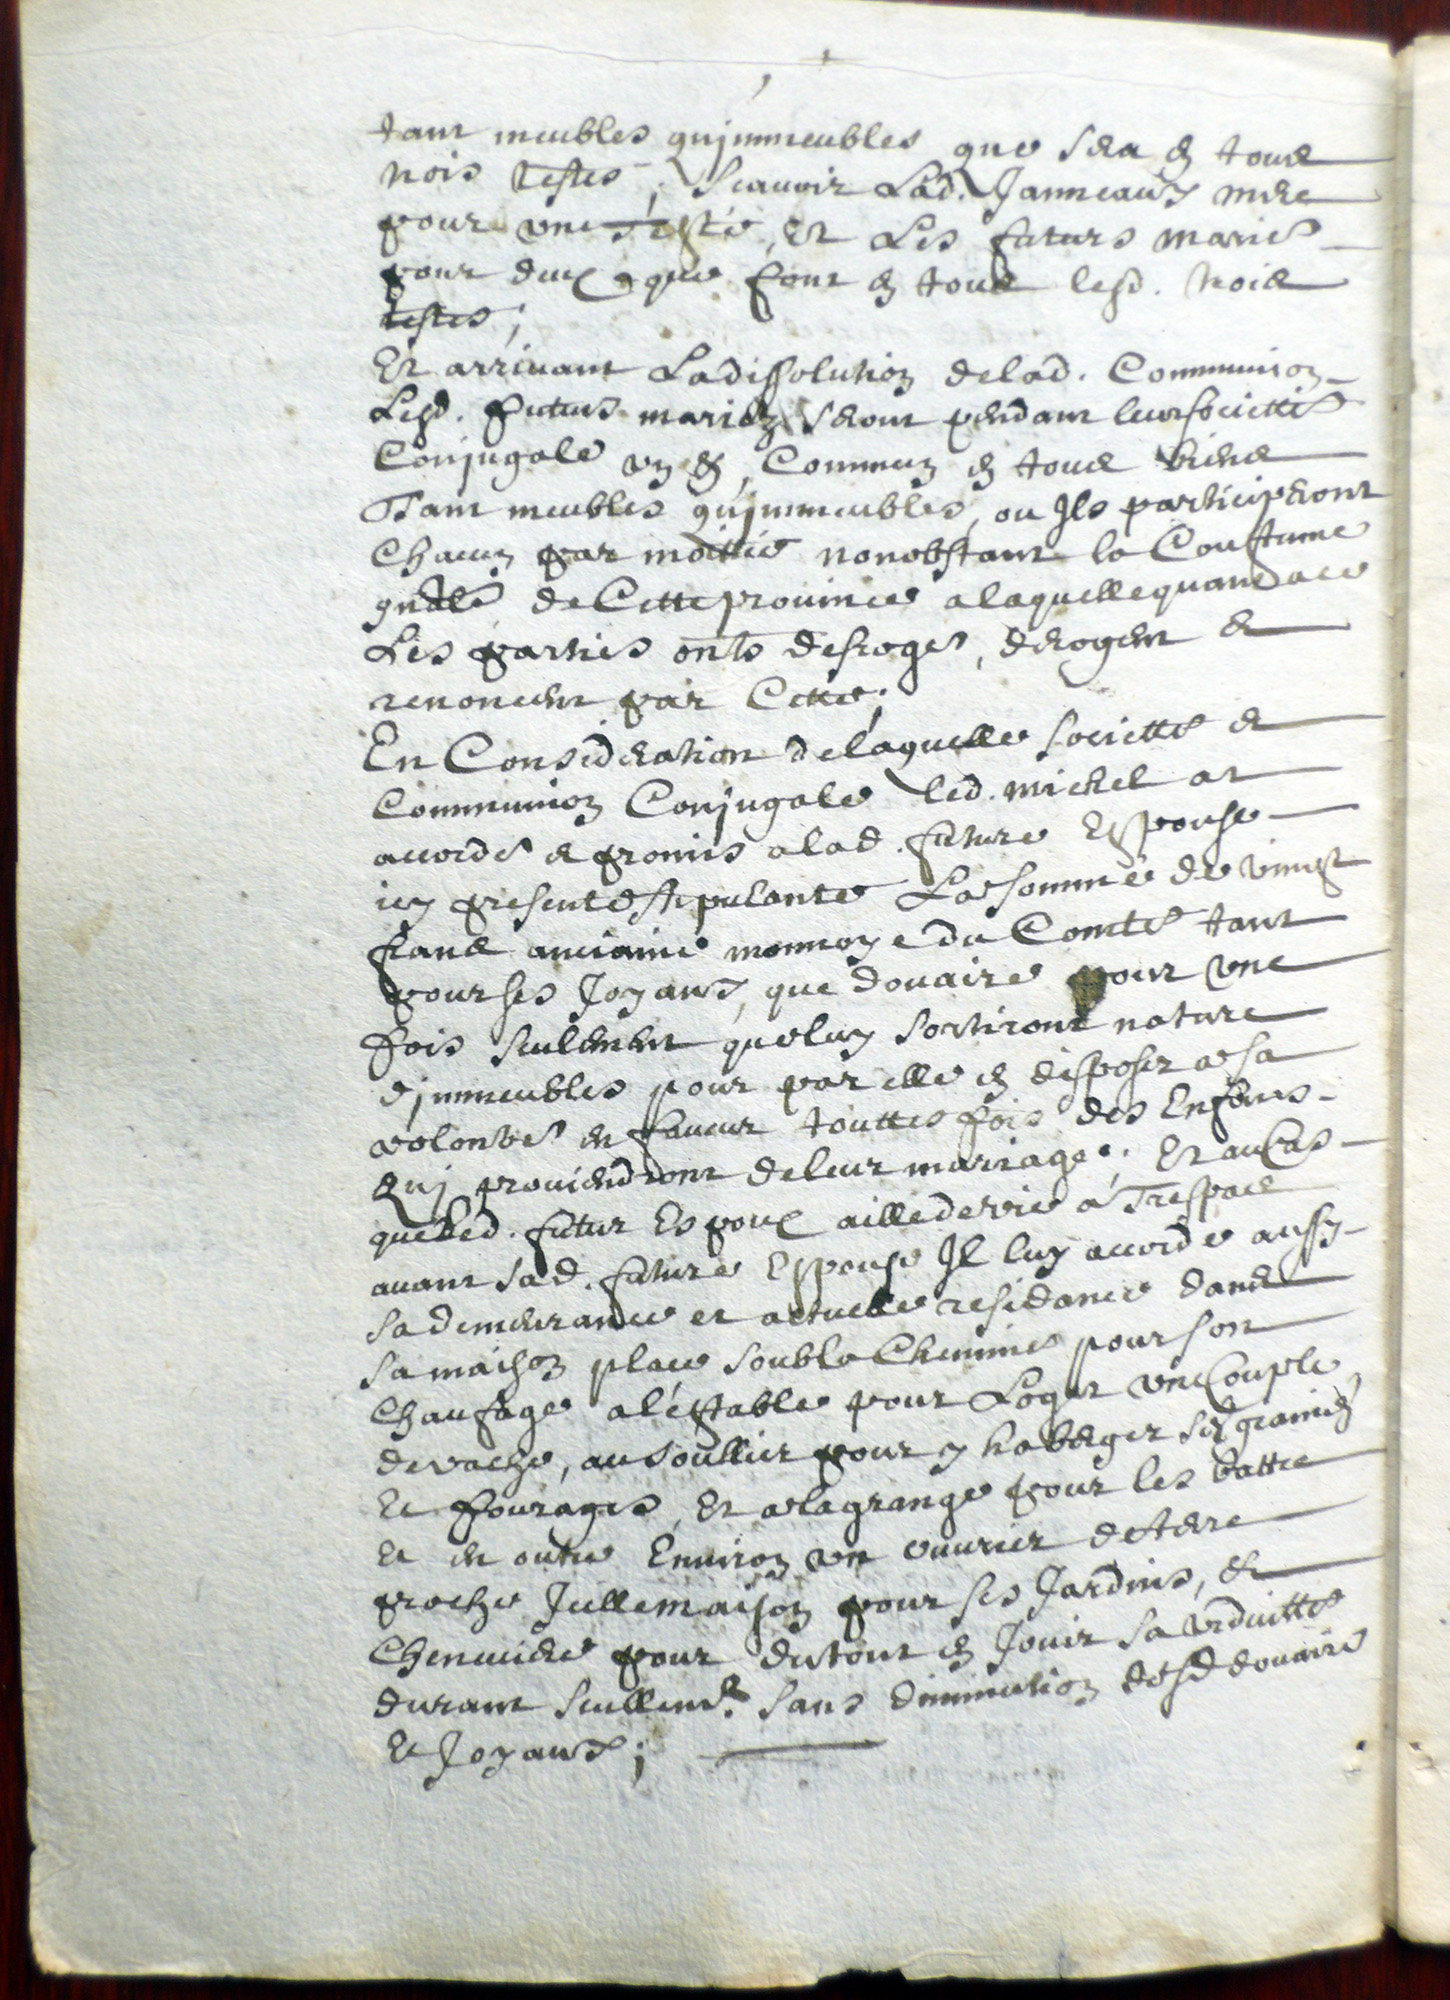 tant meubles qujmmeubles que sera en tous
trois testes, scauoir Lad. Janneaux mere
pour une teste, et Les futurs mariés
pour deux que font en tous lesd. trois
testes;
Et arriuant La dissolution de lad. Communion
Lesd. futurs mariez seront pendant leur societté
Conjugale un et Commun en tous biens
Tant meubles qujmmeubles, ou Ils participeront
Chacun par moittié nonobstant la Coustume
gnâle de Cette prouince a laquelle quand a ce
Les parties onts desroger, derogent et
renoncent par Cette;
En Consideration de laquelle societté et
Communion Conjugale led. Michel at
accordé et promis a lad. future Espouse
icy presente stipulante La somme de vingt
frans anciainne monnoye du Comté tant
pour ses Joyaux, que douaire pour une
fois seulement que luy sortiront nature
d'jmmeubles pour par elle en disposer a sa
volonté en faueur touttes fois des Enfans
quj prouiendront de leur mariage. Et au Cas
que led. futur Espoux aille de vie a Trespas
auant sad. future Espouse Il luy accorde aussy
sa demeurance et actuelle residance dans
sa maison place soub la Cheminée pour son
Chaufage a l'éstable pour Loger une Couple
de vache, au soullier pour y haberger ses graines
Et fourages, Et a la grange pour les battre
Et en outre Enuiron un ouurier de terre
proche Icelle maison pour ses Jardins, et
Cheneuiere pour du tout en Jouir sa viduitté
durant seullemt. sans diminution desd douaire
Et Joyaux;